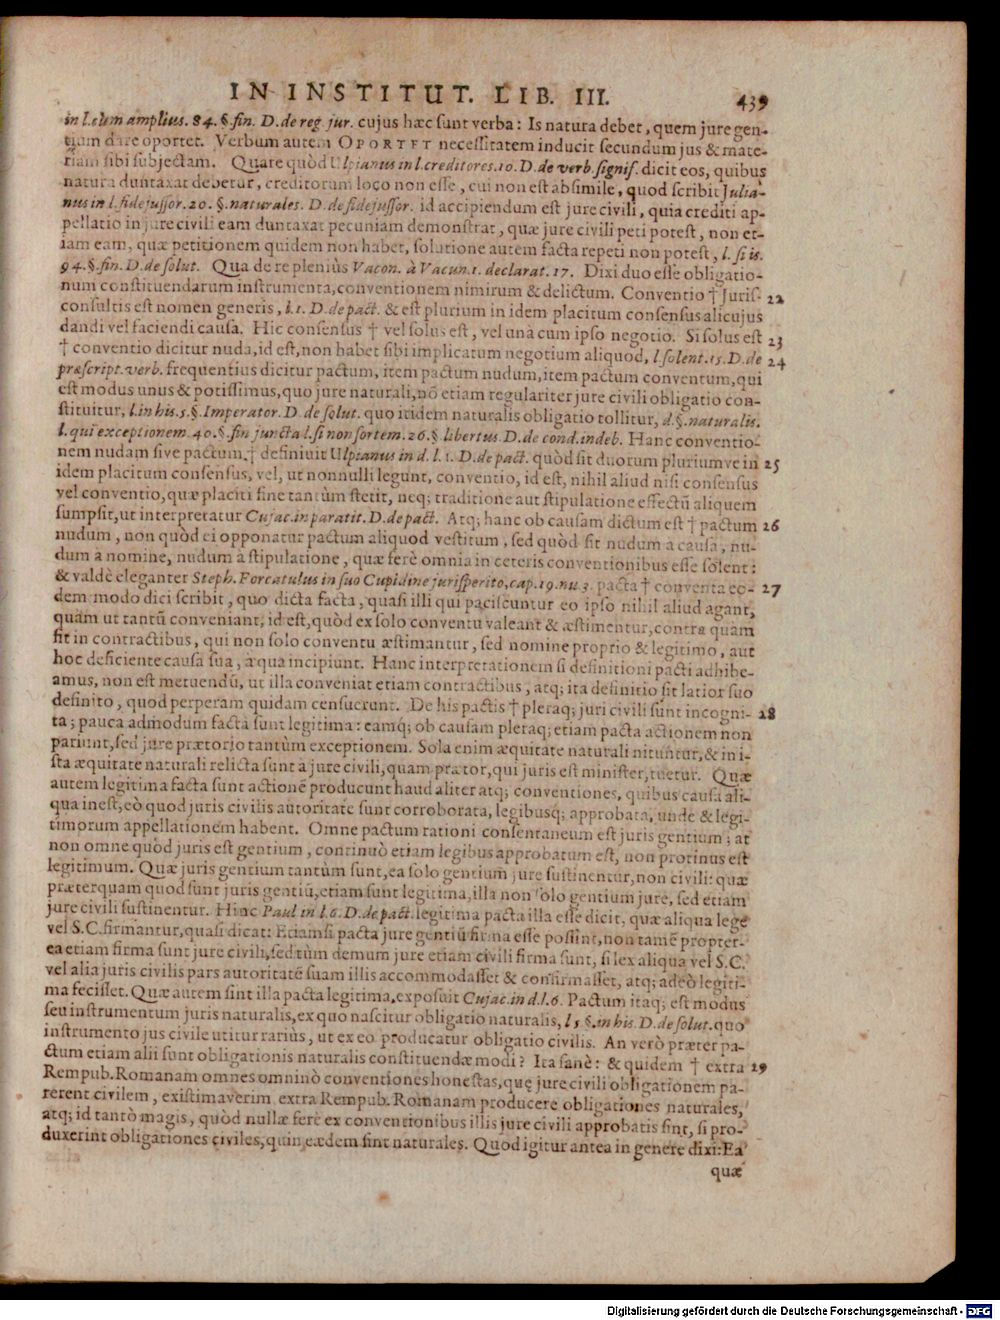 IN INSTITUT. LIB. III. 439
in l. cum amplius. 84. §. fin. D. de reg jur. cujus hæc sunt verba: Is natura debet, quem jure gen-
tium dare oportet. Verbum autem OPORTET necessitatem inducit secundum jus & mate-
riam sibi subjectam. Quare quòd Ulpianus in l. creditores. 10. D. de verb. signif. dicit eos, quibus
natura duntaxat debetur, creditorum loco non esse, cui non est absimile, quod scribit Julia-
nus in l. fidejussor. 20. §. naturales. D. de fidejussor. id accipiendum est jure civili, quia crediti ap-
pellatio in jure civili eam duntaxat pecuniam demonstrat, quæ jure civili peti potest, non et-
iam eam, quæ petitionem quidem non habet, solutione autem facta repeti non potest, l. si is.
94. §. fin. D. de solut. Qua de re pleniùs Vacon. à Vacun. 1. declarat. 17. Dixi duo esse obligatio-
num constituendarum instrumenta, conventionem nimirum & delictum. Conventio † Juris- 22
consultis est nomen generis, l. 1. D. de pact. & est plurium in idem placitum consensus alicujus
dandi vel faciendi causa. Hic consensus † vel solus est, vel unà cum ipso negotio. Si solus est 23
† conventio dicitur nuda, id est, non habet sibi implicatum negotium aliquod, l. solent. 15. D. de 24
præscript. verb. frequentius dicitur pactum, item pactum nudum, item pactum conventum, qui
est modus unus & potissimus, quo jure naturali, nõ etiam regulariter jure civili obligatio con-
stituitur, l. in his. 5. §. Imperator. D. de solut. quo itidem naturalis obligatio tollitur, d. §. naturalis.
l. qui exceptionem. 40. §. fin juncta l. si non sortem. 26. § libertus. D. de cond. indeb. Hanc conventio-
nem nudam sive pactum † definivit Ulpianus in d. l. 1. D. de pact. quòd sit duorum pluriumve in 25
idem placitum consensus, vel, ut nonnulli legunt, conventio, id est, nihil aliud nisi consensus
vel conventio, quæ placiti fine tantùm stetit, neq; traditione aut stipulatione effectũ aliquem
sumpsit, ut interpretatur Cujac. in paratit. D. de pact. Atq; hanc ob causam dictum est † pactum 26
nudum, non quòd ei opponatur pactum aliquod vestitum, sed quòd sit nudum a causa, nu-
dum à nomine, nudum à stipulatione, quæ ferè omnia in ceteris conventionibus esse solent:
& valdè eleganter Steph. Forcatulus in suo Cupidine jurisperito, cap. 19. nu 3. pacta † conventa eo- 27
dem modo dici scribit, quo dicta facta, quasi illi qui paciscuntur eo ipso nihil aliud agant,
quàm ut tantũ conveniant, id est, quòd ex solo conventu valeant & æstimentur, contra quàm
fit in contractibus, qui non solo conventu æstimantur, sed nomine proprio & legitimo, aut
hoc deficiente causa sua, à qua incipiunt. Hanc interpretationem si definitioni pacti adhibe-
amus, non est metuendũ, ut illa conveniat etiam contractibus, atq; ita definitio sit latior suo
definito, quod perperam quidam censuerunt. De his pactis † pleraq; juri civili sunt incogni- 28
ta; pauca admodum facta sunt legitima: eamq́; ob causam pleraq; etiam pacta actionem non
pariunt, sed jure prætorio tantùm exceptionem. Sola enim æquitate naturali nituntur, & in i-
sta æquitate naturali relicta sunt à jure civili, quam prætor, qui juris est minister, tuetur. Quæ
autem legitima facta sunt actionẽ producunt haud aliter atq; conventiones, quibus causa ali-
qua inest, eò quod juris civilis autoritate sunt corroborata, legibusq́; approbata, unde & legi-
timorum appellationem habent. Omne pactum rationi consentaneum est juris gentium; at
non omne quòd juris est gentium, continuò etiam legibus approbatum est, non protinus est
legitimum. Quæ juris gentium tantùm sunt, ea solo gentium jure sustinentur, non civili: quæ
præterquam quod sunt juris gentiũ, etiam sunt legitima, illa non solo gentium jure, sed etiam
jure civili sustinentur. Hinc Paul in l. 6. D. de pact. legitima pacta illa esse dicit, quæ aliqua lege
vel S.C. firmantur, quasi dicat: Etiamsi pacta jure gentiũ firma esse possint, non tamẽ propter-
ea etiam firma sunt jure civili, sed tùm demum jure etiam civili firma sunt, si lex aliqua vel S.C.
vel alia juris civilis pars autoritatẽ suam illis accommodasset & confirmasset, atq; adeò legiti-
ma fecisset. Quæ autem sint illa pacta legitima, exposuit Cujac. in d. l. 6. Pactum itaq; est modus
seu instrumentum juris naturalis, ex quo nascitur obligatio naturalis, l 5 §. in his. D. de solut. quo
instrumento jus civile utitur rariùs, ut ex eo producatur obligatio civilis. An verò præter pa-
ctum etiam alii sunt obligationis naturalis constituendæ modi? Ita sanè: & quidem † extra 29
Rempub. Romanam omnes omninò conventiones honestas, quę jure civili obligationem pa-
rerent civilem, existimaverim extra Rempub. Romanam producere obligationes naturales,
atq; id tantò magis, quòd nullæ ferè ex conventionibus illis jure civili approbatis sint, si pro-
duxerint obligationes civiles, quin eædem sint naturales. Quod igitur antea in genere dixi: Ea
quæ
Digitalisierung gefördert durch die Deutsche Forschungsgemeinschaft - DFG